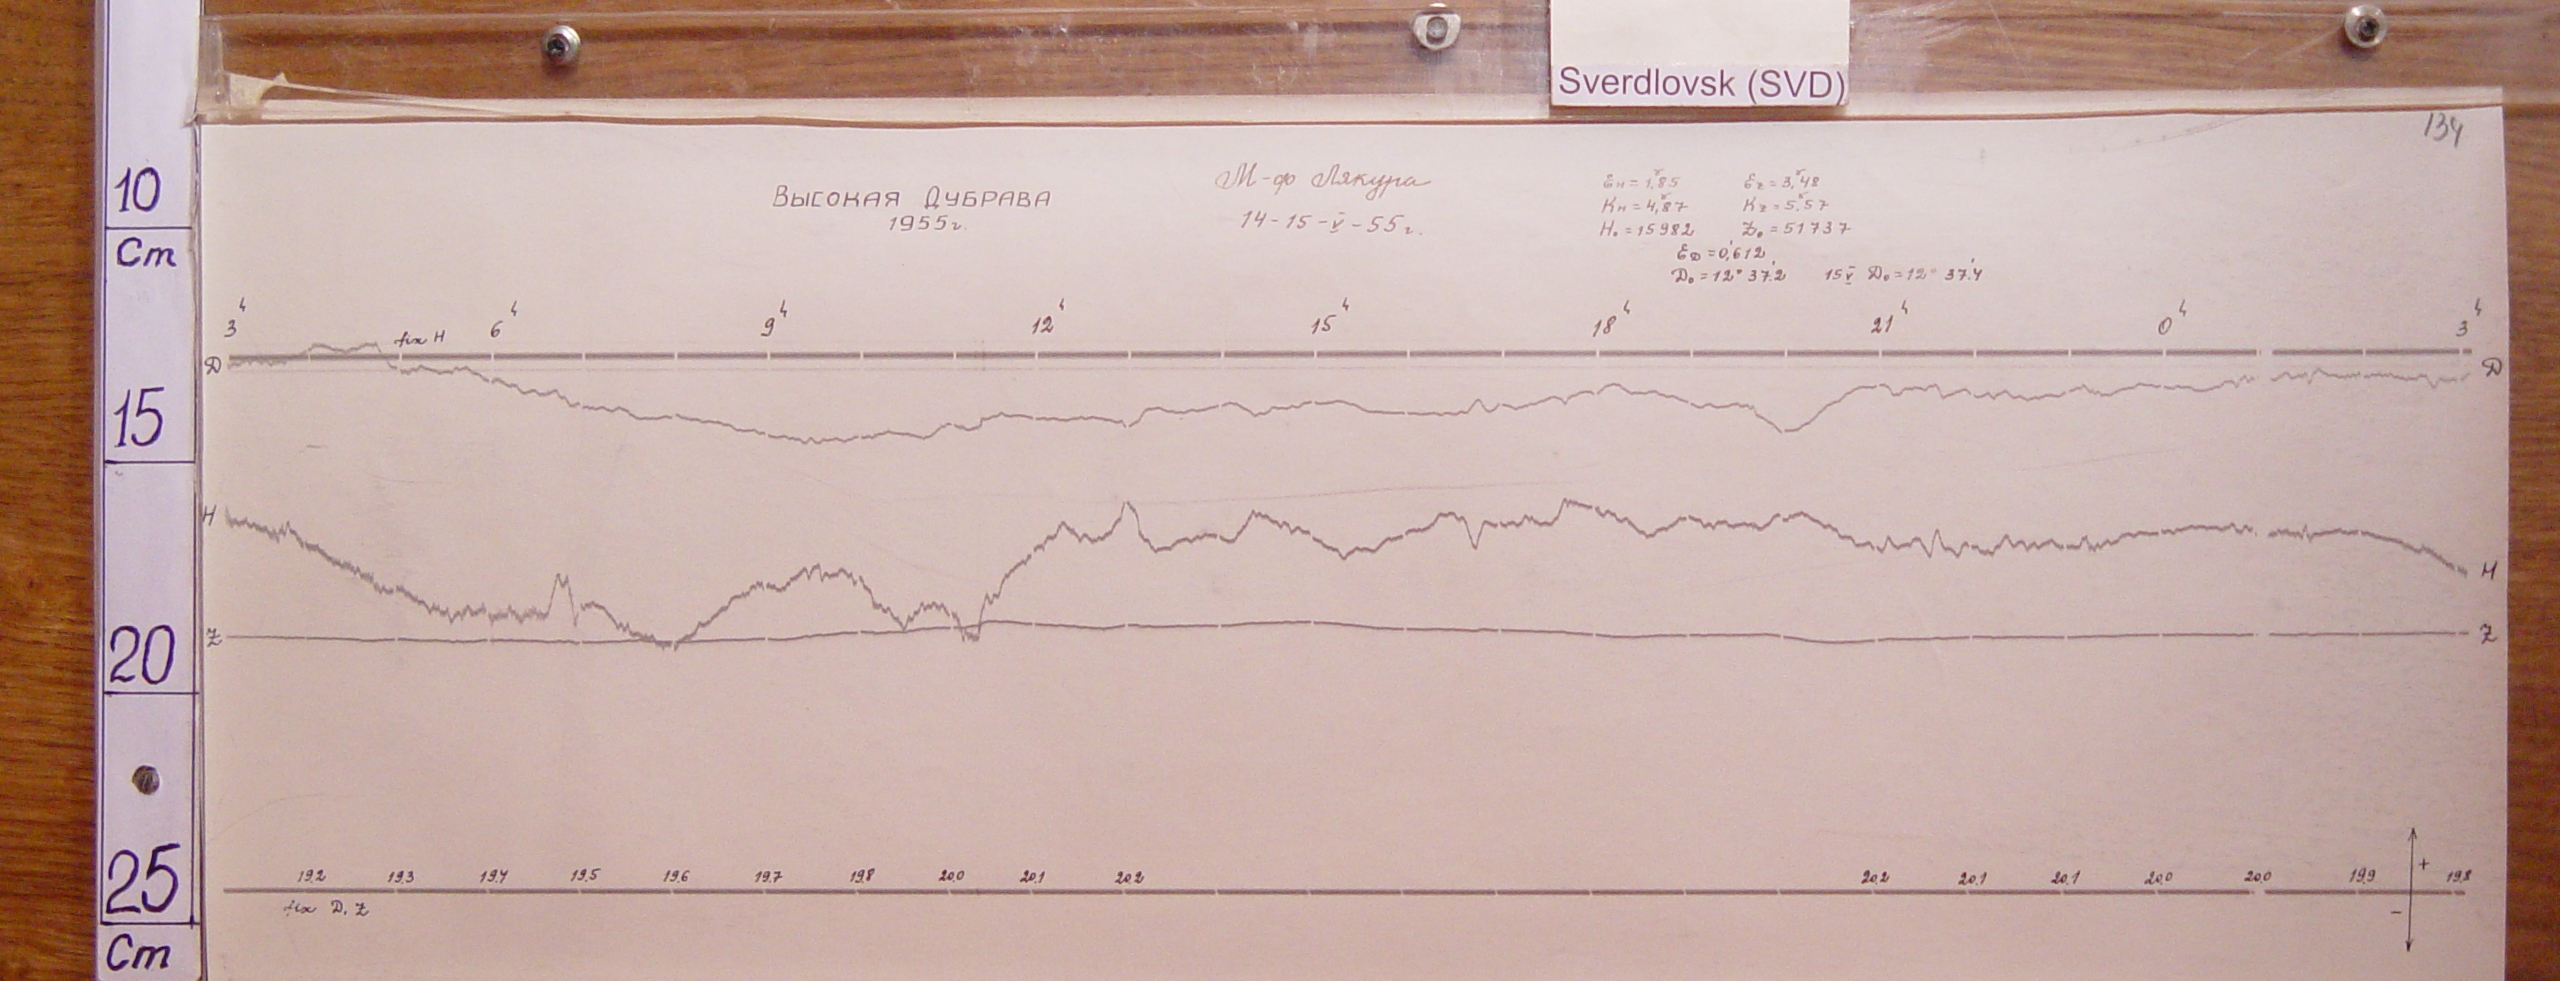 Sverdlovsk (SVD)
134
10
Cm
15
20
25
Cm
Высокая Дубрава
1955г.
М-ф Лякура
14-15-V-55г.
Eн=1,85 Ez=3,48
Kн=4,87 Kz=5,57
H₀=15982 Z₀=51737
ED=0,612
D₀=12° 37,2 15V D₀=12° 37,4
3ч 6ч 9ч 12ч 15ч 18ч 21ч 0ч 3ч
fix H
D D
H H
Z Z
19.2 19.3 19.4 19.5 19.6 19.7 19.8 20.0 20.1 20.2 20.2 20.1 20.1 20.0 20.0 19.9 19.8
fix D, Z
+
-